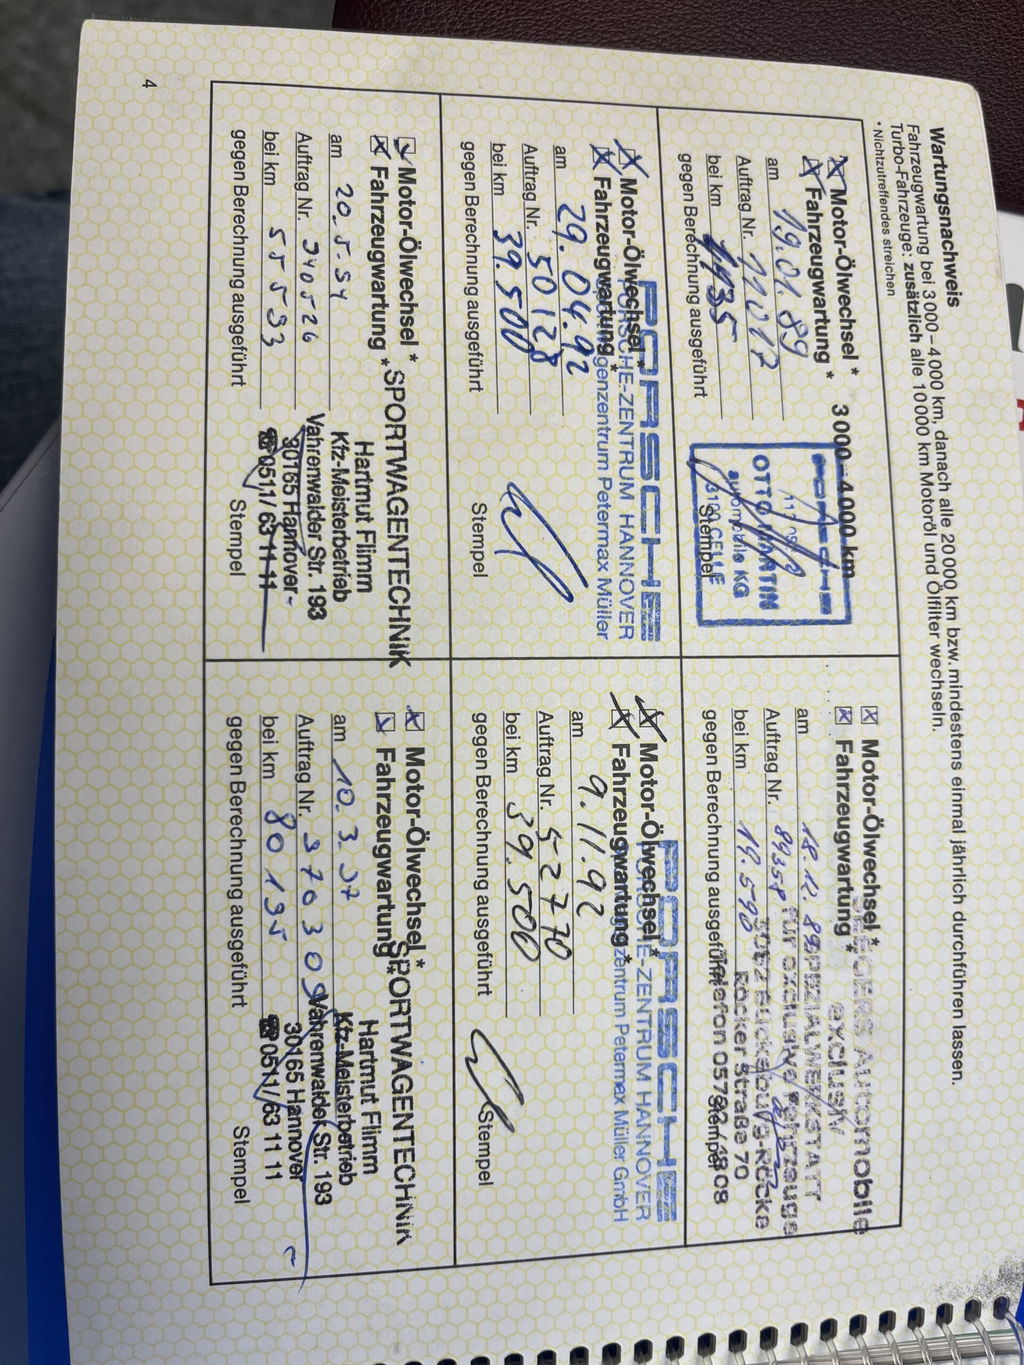 Wartungsnachweis
Fahrzeugwartung bei 3000 – 4000 km, danach alle 20000 km bzw. mindestens einmal jährlich durchführen lassen.
Turbo-Fahrzeuge: zusätzlich alle 10000 km Motoröl und Ölfilter wechseln.
* Nichtzutreffendes streichen
Motor-Ölwechsel * 3000 – 4000 km
Fahrzeugwartung *
am 19.01.89
Auftrag Nr. 11017
bei km
gegen Berechnung ausgeführt
OTTO MARTIN
automobile KG
3100 CELLE
Stempel
Motor-Ölwechsel *
Fahrzeugwartung *
am 18.12.89
Auftrag Nr. 89358
bei km 19.590
gegen Berechnung ausgeführt
Automobile
exclusiv
SPEZIALWERKSTATT
für exclusive Fahrzeuge
Bückeburg-Röcke
Röcker Straße 70
Telefon
Stempel
Motor-Ölwechsel *
Fahrzeugwartung *
am 29.04.92
Auftrag Nr. 50128
bei km 39.500
gegen Berechnung ausgeführt
PORSCHE
PORSCHE-ZENTRUM HANNOVER
Petermax Müller
Stempel
Motor-Ölwechsel *
Fahrzeugwartung *
am 9.11.92
Auftrag Nr. 52770
bei km 39.500
gegen Berechnung ausgeführt
PORSCHE
PORSCHE-ZENTRUM HANNOVER
zentrum Petermax Müller GmbH
Stempel
Motor-Ölwechsel *
Fahrzeugwartung *
am 20.5.94
Auftrag Nr. 340526
bei km 55533
gegen Berechnung ausgeführt
SPORTWAGENTECHNIK
Hartmut Flimm
Kfz-Meisterbetrieb
Vahrenwalder Str. 193
30165 Hannover
☎ 0511/ 63 11 11
Stempel
Motor-Ölwechsel *
Fahrzeugwartung *
am 10.3.97
Auftrag Nr. 370309
bei km 80195
gegen Berechnung ausgeführt
SPORTWAGENTECHNIK
Hartmut Flimm
Kfz-Meisterbetrieb
Vahrenwalder Str. 193
30165 Hannover
☎ 0511/ 63 11 11
Stempel
4